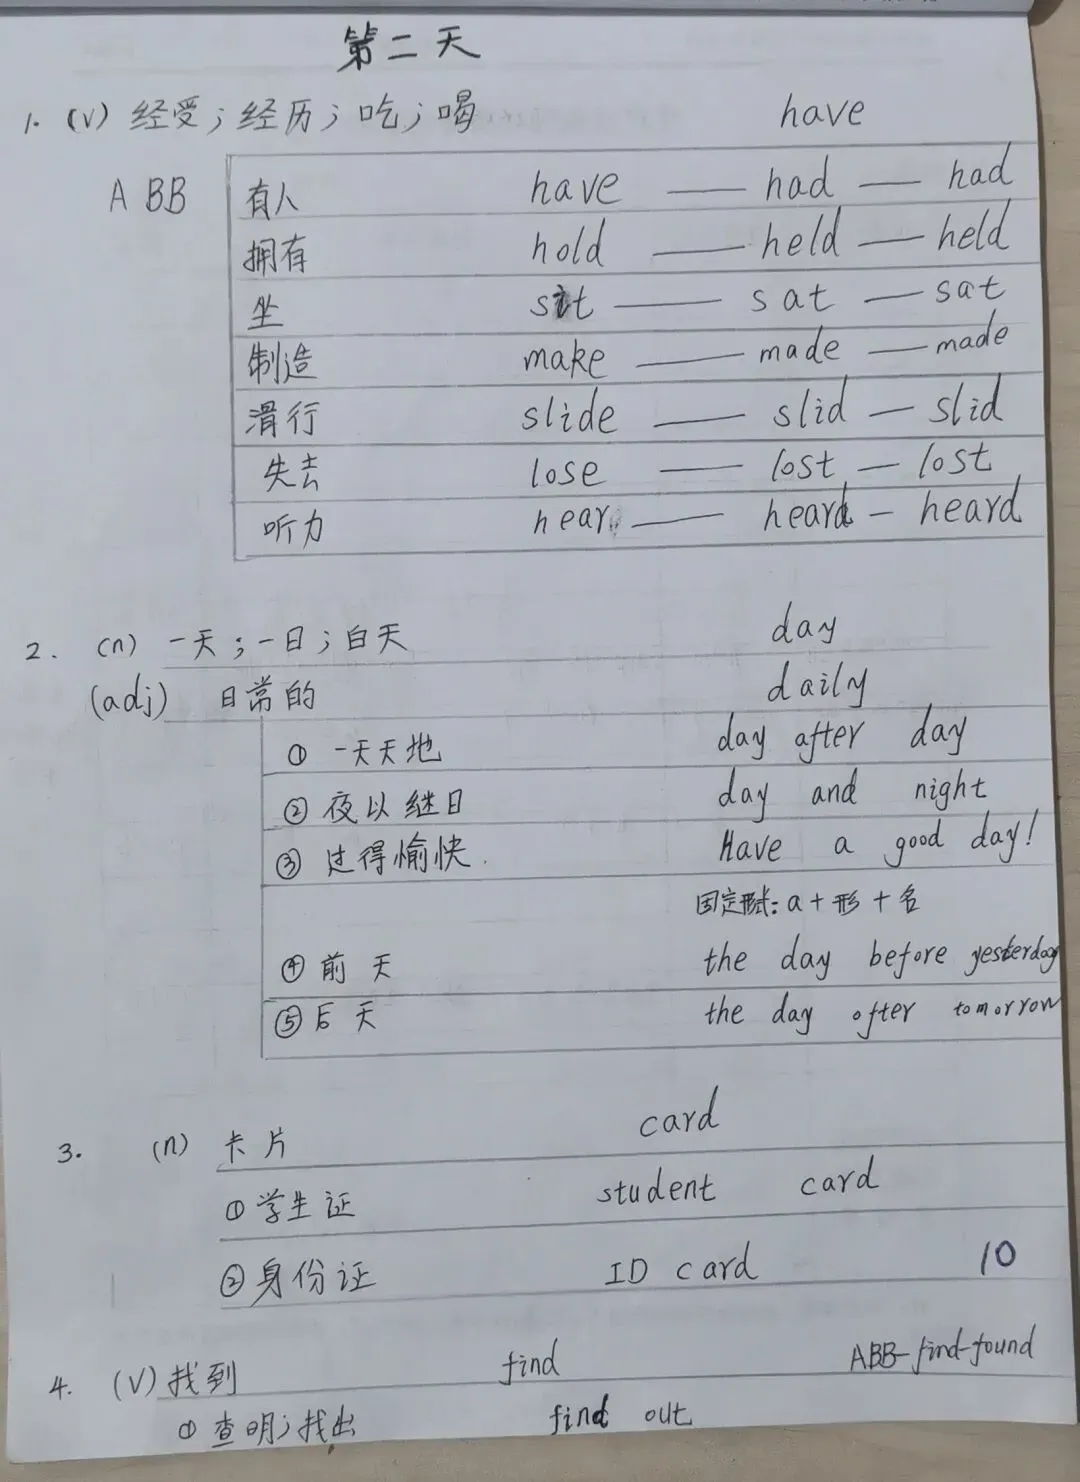 第二天
1. (v) 经受；经历；吃；喝 have
ABB 有人 have — had — had
拥有 hold — held — held
坐 sit — sat — sat
制造 make — made — made
滑行 slide — slid — slid
失去 lose — lost — lost
听力 hear — heard — heard
2. (n) 一天；一日；白天 day
(adj) 日常的 daily
① 一天天地 day after day
② 夜以继日 day and night
③ 过得愉快. Have a good day!
固定形式: a + 形 + 名
④ 前天 the day before yesterday
⑤ 后天 the day after tomorrow
3. (n) 卡片 card
① 学生证 student card
② 身份证 ID card 10
4. (V) 找到 find ABB-find-found
① 查明；找出 find out